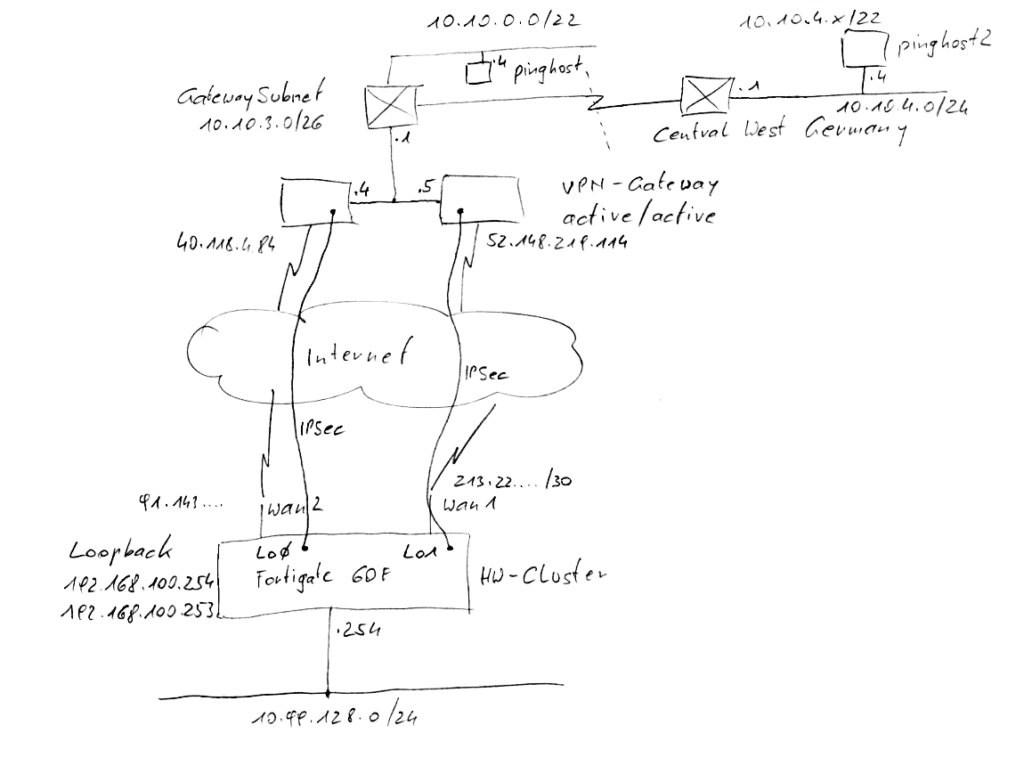 10.10.0.0/22
10.10.4.x/22
pinghost2
.4
pinghost
.4
GatewaySubnet
10.10.3.0/26
.1
10.10.4.0/24
Central West Germany
.1
.4
.5
VPN-Gateway
active/active
40.118.4.84
52.148.219.114
Internet
IPSec
IPSec
213.22..../30
91.143....
Wan2
Wan1
Loopback
192.168.100.254
192.168.100.253
Lo0
Lo1
Fortigate GDF
HW-Cluster
.254
10.99.128.0/24